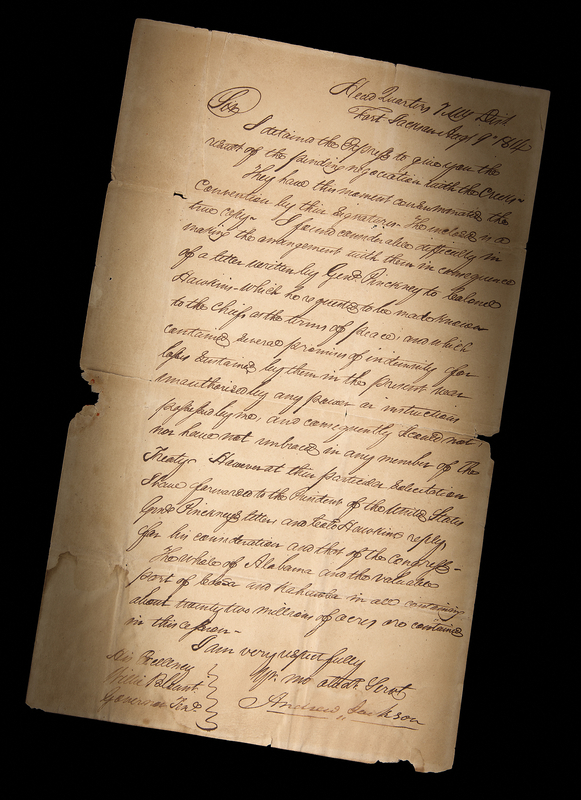 Head Quarters 7 M Dist
Fort Jackson Augt 9th 1814
Sir
I detaind the Express to give you the
result of the pending negociation with the Creeks
They have this moment consummated the
Convention by their Signatures. The inclosed is a
true copy. I found considerable difficulty in
making the arrangement with them in consequence
of a letter written by Genl Pinckney to Colonel
Hawkins which he requested to be made known
to the Chiefs as the terms of peace, and which
contained several promises of indemnity for
losses sustained by them in the present war
unauthorised by any power or instructions
possessed by me, and consequently I could not
nor have not embraced in any member of the
Treaty. However at their particular Solicitation
I have forwarded to the President of the United States
Genl Pinckney's letters and Colo Hawkins reply
for his consideration and that of the Congress
The whole of Alabama and the valuable
part of Coosa and Kahawba in all containing
about twenty two millions of acres are contained
in this cession
I am very respectfully
Yr. mo obdt. Servt
Andrew Jackson
His Excellency
Willie Blount
Governor Tend